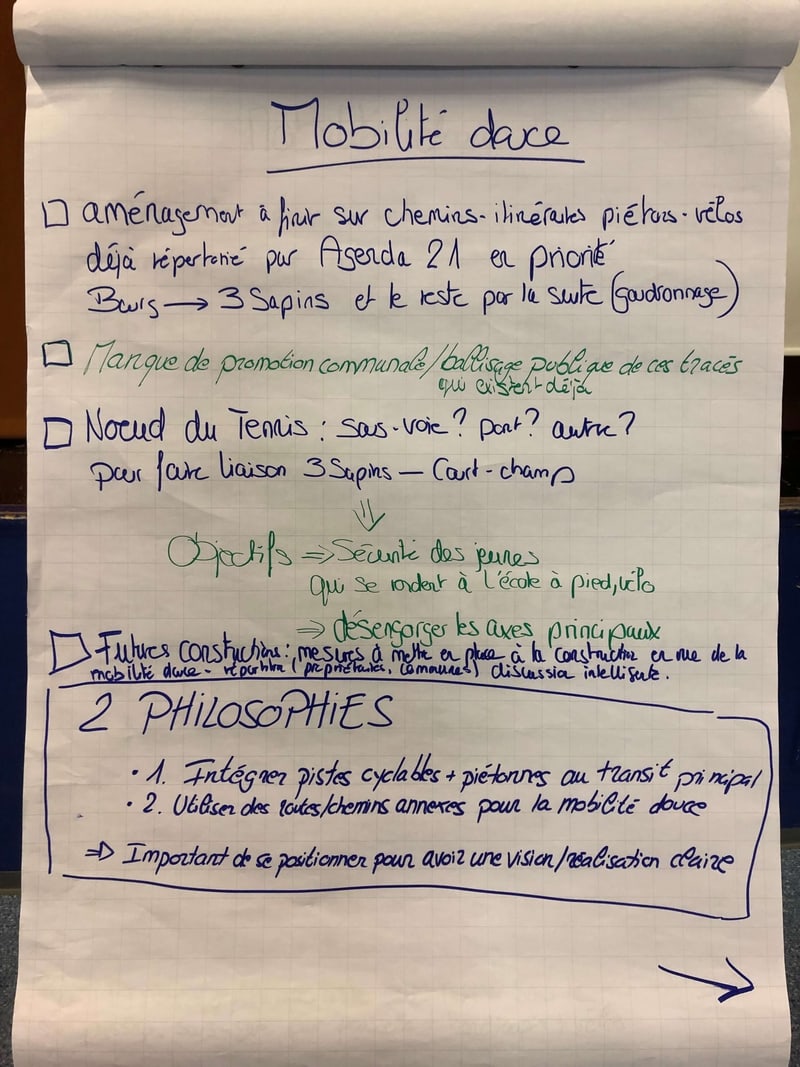 Mobilité douce
□ aménagement à finir sur chemins-itinéraires piétons-vélos
déjà répertorié par Agenda 21 en priorité
Bourg → 3 Sapins et le reste par la suite (goudronnage)
□ Manque de promotion communale/ballisage publique de ces tracés
qui existent déjà
□ Noeud du Tennis : sous-voie? pont? autre?
pour faire liaison 3 Sapins — Court-champ
⇓
Objectifs ⇒ Sécurité des jeunes
qui se rendent à l'école à pied, vélo
⇒ désengorger les axes principaux
□ Futures constuctions : mesures à mettre en place à la construction en vue de la
mobilité douce - répartition (propriétaires, communes) discussion intelligente.
2 PHILOSOPHIES
• 1. Intégrer pistes cyclables + piétonnes au transit principal
• 2. Utiliser des routes/chemins annexes pour la mobilité douce
⇒ Important de se positionner pour avoir une vision/réalisation claire
→